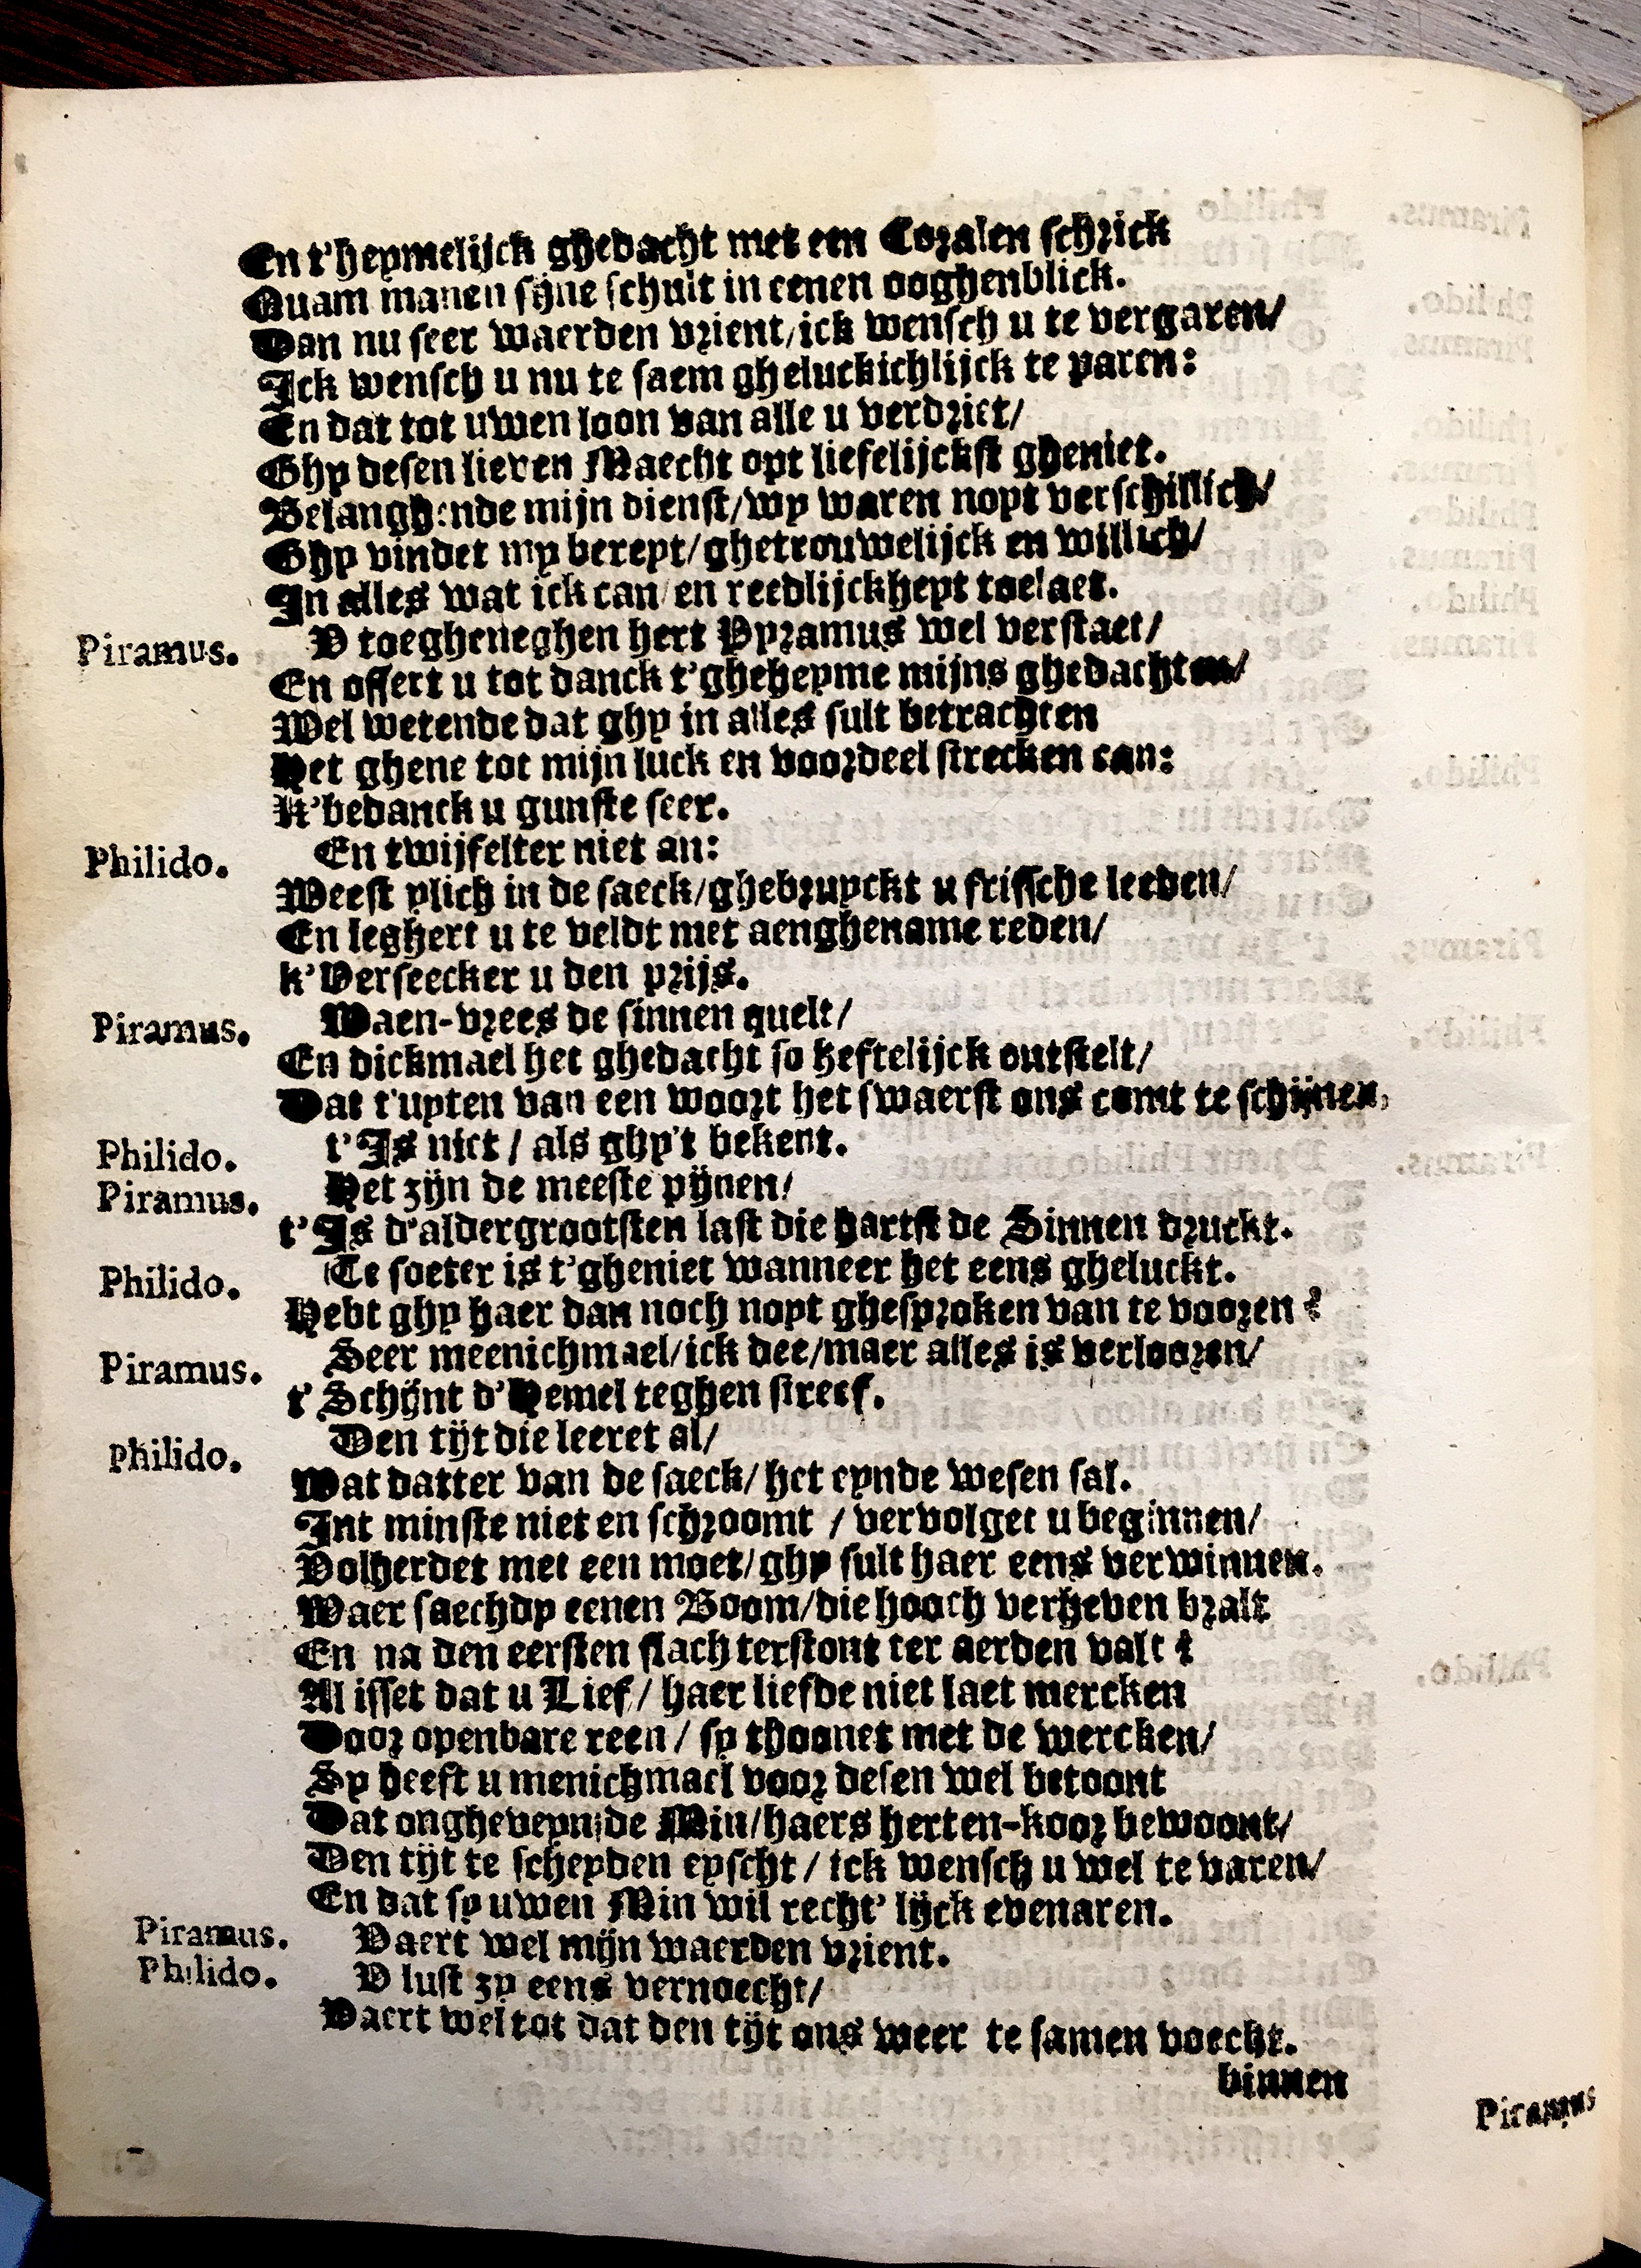 En t'heymelijck ghedacht met een Coralen schrick
Quam manen sijne schult in eenen ooghenblick.
Dan nu seer waerden vrient/ick wensch u te vergaren/
Ick wensch u nu te saem gheluckichlijck te paren:
En dat tot uwen loon van alle u verdriet/
Ghy desen lieven Maecht opt liefelijckst gheniet.
Belanghende mijn dienst/wy waren noyt verschillich/
Ghy vindet my bereyt/ghetrouwelijck en willich/
In alles wat ick can/en reedlijckheyt toelaet.
Piramus. V toegheneghen hert Pyramus wel verstaet/
En offert u tot danck t'gheheyme mijns ghedachten/
Wel wetende dat ghy in alles sult betrachten
Het ghene tot mijn luck en voordeel strecken can:
K'bedanck u gunste seer.
Philido. En twijfelter niet an:
Weest vlich in de saeck/ghebruyckt u frissche leeden/
En leghert u te veldt met aenghename reden/
k'Verseecker u den prijs.
Piramus. Waen-vrees de sinnen quelt/
En dickmael het ghedacht so heftelijck ontstelt/
Dat t'uyten van een woort het swaerst ons comt te schijnen,
Philido. t'Is niet / als ghy't bekent.
Piramus. Het zijn de meeste pijnen/
t'Is d'aldergrootsten last die hartst de Sinnen druckt.
Philido. Te soeter is t'gheniet wanneer het eens gheluckt.
Hebt ghy haer dan noch noyt ghesproken van te vooren?
Piramus. Seer meenichmael/ick dee/maer alles is verlooren/
t'Schijnt d'Hemel teghen streef.
Philido. Den tijt die leeret al/
Wat datter van de saeck/het eynde wesen sal.
Int minste niet en schroomt / vervolget u beginnen/
Volherdet met een moet/ghy sult haer eens verwinnen.
Waer saechdy eenen Boom/die hooch verheven bralt
En na den eersten slach terstont ter aerden valt?
Al isset dat u Lief/haer liefde niet laet mercken
Door openbare reen / sy thoonet met de wercken/
Sy heeft u menichmael voor desen wel betoont
Dat ongheveynsde Min/haers herten-koor bewoont/
Den tijt te scheyden eyscht / ick wensch u wel te varen/
En dat sy uwen Min wil recht'lijck evenaren.
Piramus. Vaert wel mijn waerden vrient.
Philido. V lust zy eens vernoecht/
Vaert wel tot dat den tijt ons weer te samen voecht.
binnen
Piramus